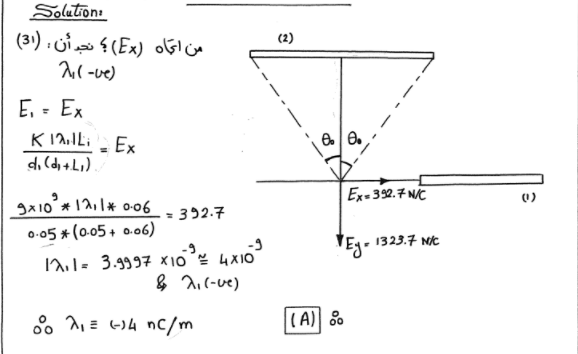 Solution:
(31): من اتجاه (Ex) نجد أن
λ₁ (-ve)
E₁ = Ex
K |λ₁| L₁ / d₁(d₁+L₁) = Ex
9×10⁹ * |λ₁| * 0.06 / 0.05 * (0.05 + 0.06) = 392.7
|λ₁| = 3.9997 × 10⁻⁹ ≅ 4×10⁻⁹
& λ₁ (-ve)
∴ λ₁ ≡ (-) 4 nC/m
(A) ∴
(2)
θ₀ θ₀
Ex = 392.7 N/C
(1)
Ey = 1323.7 N/C